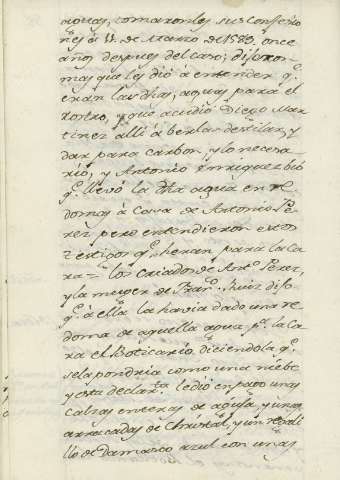 aguas, tomaronles sus Confesio
nes á 11. de Marzo de 1589. once
años despues del caso; dijeron
mas que les dió á entender q.^e
eran las dhas, aguas para el
rostro, y que acudió Diego Mar
tinez alli á berlas destilar, y
dar para carbon, y lo necesa
rio; y Antonio Enriquez bió
q.^e llevó la dha agua en re
domas á Casa de Antonio Pe
rez, pero entendieron estos
testigos q.^e heran para la Ca
ra = los Criados de Ant.º Perez,
y la muger de Fran.^co Ruiz dijo
q.^e á ella la havia dado una re
doma de aquella agua p.^a la Ca
ra el Boticario, diciendola q.^e
se la pondria como una niebe
y esta declar.^te le dió en pago unas
calzas enteras de aguja, y unas
arracadas de Christal, y un
llo de Damasco azul con unas